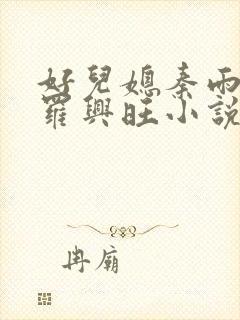 好兒媳秦雨
羅興旺小說
冉廟